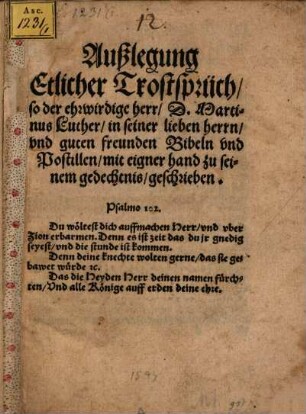 Asc.
1231/1
12.
Außlegung
Etlicher Trostsprüch/
so der ehrwirdige herr/ D. Marti-
nus Luther/ in seiner lieben herrn/
vnd guten freunden Bibeln vnd
Postillen/ mit eigner hand zu sei-
nem gedechtnis/ geschrieben.
Psalmo 102.
Du wöltest dich auffmachen Herr/ vnd vber
Zion erbarmen. Denn es ist zeit das du jr gnedig
seyest/ vnd die stunde ist kommen.
Denn deine knechte wolten gerne/ das sie ge
bawet würde ꝛc.
Das die Heyden Herr deinen namen fürch-
ten/ Vnd alle Könige auff erden deine ehre.